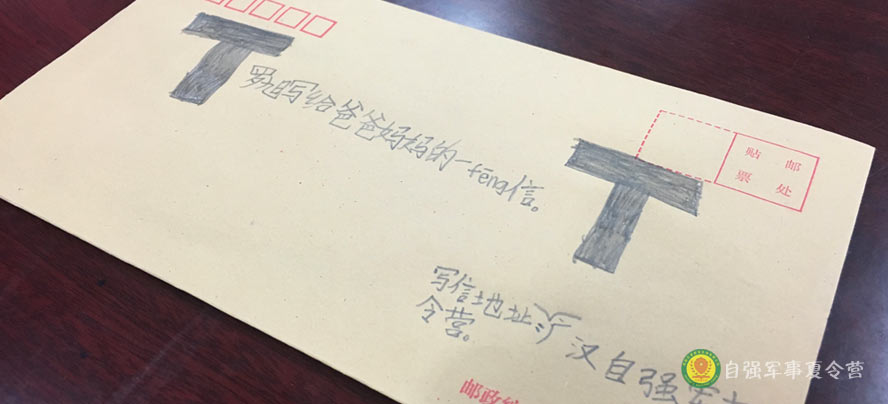 T
写给爸爸妈妈的一fēng信。
T
贴 邮
票 处
写信地址
汉自强军
令营。
邮政编
自强军事夏令营